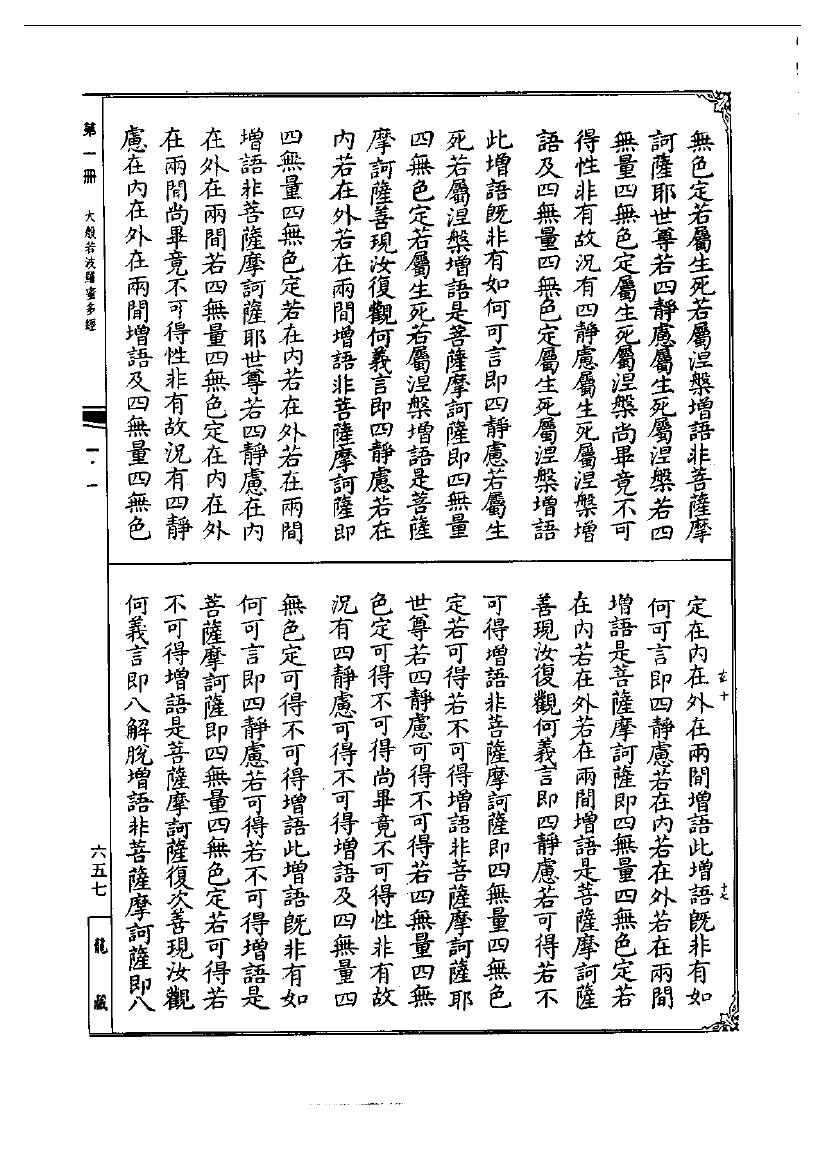 無色定若屬生死若屬涅槃增語非菩薩摩
訶薩耶世尊若四靜慮屬生死屬涅槃若四
無量四無色定屬生死屬涅槃尚畢竟不可
得性非有故況有四靜慮屬生死屬涅槃增
語及四無量四無色定屬生死屬涅槃增語
此增語既非有如何可言即四靜慮若屬生
死若屬涅槃增語是菩薩摩訶薩即四無量
四無色定若屬生死若屬涅槃增語是菩薩
摩訶薩善現汝復觀何義言即四靜慮若在
內若在外若在兩間增語非菩薩摩訶薩即
四無量四無色定若在內若在外若在兩間
增語非菩薩摩訶薩耶世尊若四靜慮在內
在外在兩間若四無量四無色定在內在外
在兩間尚畢竟不可得性非有故況有四靜
慮在內在外在兩間增語及四無量四無色
定在內在外在兩間增語此增語既非有如
何可言即四靜慮若在內若在外若在兩間
增語是菩薩摩訶薩即四無量四無色定若
在內若在外若在兩間增語是菩薩摩訶薩
善現汝復觀何義言即四靜慮若可得若不
可得增語非菩薩摩訶薩即四無量四無色
定若可得若不可得增語非菩薩摩訶薩耶
世尊若四靜慮可得不可得若四無量四無
色定可得不可得尚畢竟不可得性非有故
況有四靜慮可得不可得增語及四無量四
無色定可得不可得增語此增語既非有如
何可言即四靜慮若可得若不可得增語是
菩薩摩訶薩即四無量四無色定若可得若
不可得增語是菩薩摩訶薩復次善現汝觀
何義言即八解脫增語非菩薩摩訶薩即八
十七
第一冊 大般若波羅蜜多經
一·一
六五七
龍藏